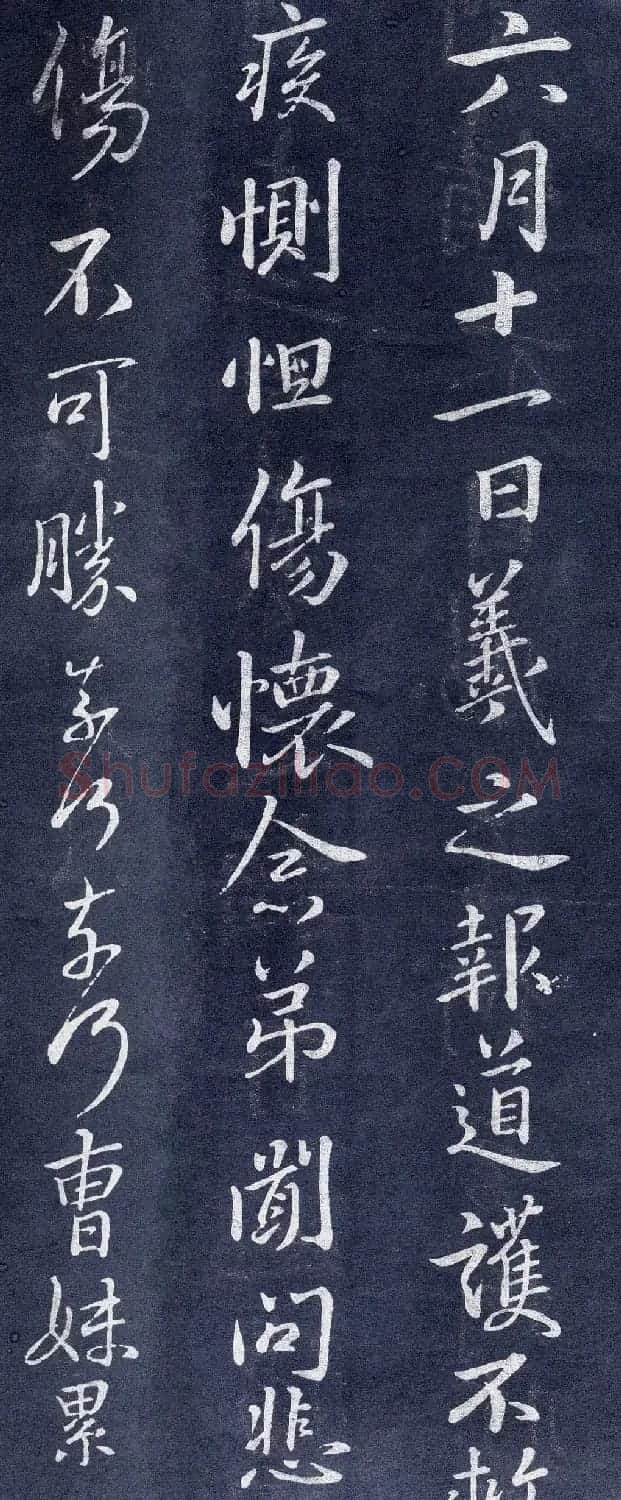 六月十一日羲之報道護不
疾惻怛傷懷念弟聞問悲
傷不可勝奈何奈何曹妹累
Shufaziliao.COM